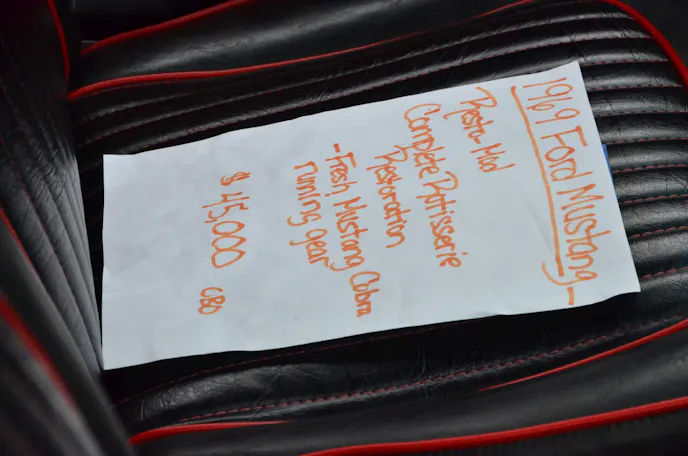 1969 Ford Mustang
Resto-Mod
Complete Rotisserie
Restoration
-Fresh Mustang Cobra
runing gear
$45,000 OBO